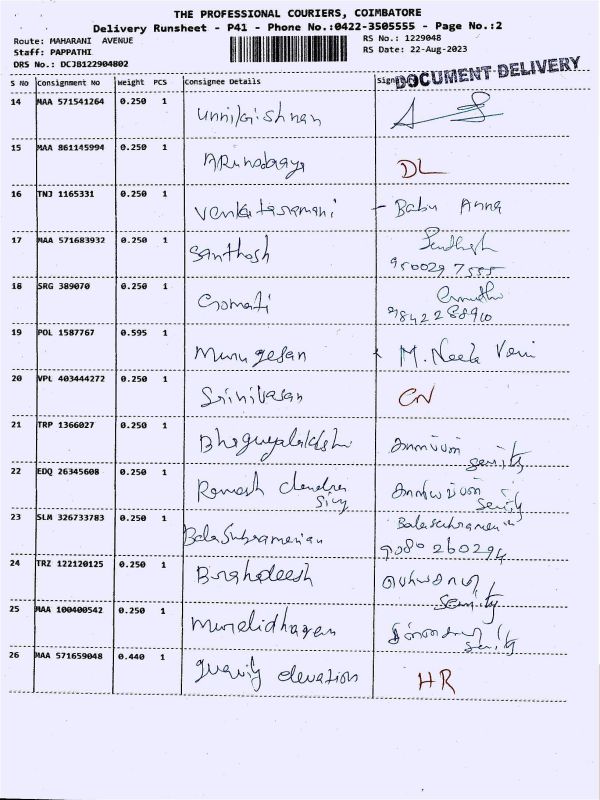 THE PROFESSIONAL COURIERS, COIMBATORE
Delivery Runsheet - P41 - Phone No.:0422-3505555 - Page No.:2
Route: MAHARANI AVENUE
RS No.: 1229048
Staff: PAPPATHI
RS Date: 22-Aug-2023
DRS No.: DCJB122904802
DOCUMENT DELIVERY
S No Consignment No Weight PCS Consignee Details
14 MAA 571541264 0.250 1 Unnikrishnan
15 MAA 861145994 0.250 1 DL
16 TNJ 1165331 0.250 1 Venkatasramani - Babu Anna
17 MAA 571683932 0.250 1 Santhosh
18 SRG 389070 0.250 1 Gomati
9842288910
19 POL 1587767 0.595 1 Murugesan M. Neela Veni
20 VPL 403444272 0.250 1 Srinivasan CN
21 TRP 1366027 0.250 1
22 EDQ 26345608 0.250 1 Ramesh
23 SLM 326733783 0.250 1 BalaSubramanian
9080260294
24 TRZ 122120125 0.250 1
25 MAA 100400542 0.250 1 Muralidharan
26 MAA 571659048 0.440 1 elevation HR